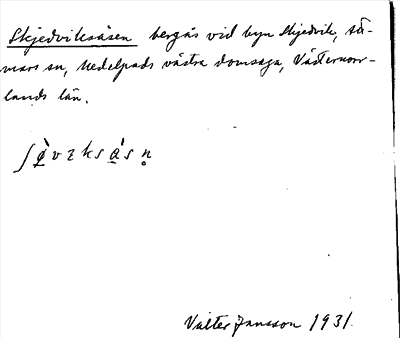 Skjedviksåsen bergås vid byn Skjedvik, Stö-
mars sn, Medelpads västra domsaga, Västernorr-
lands län.
Valter Jansson 1931.